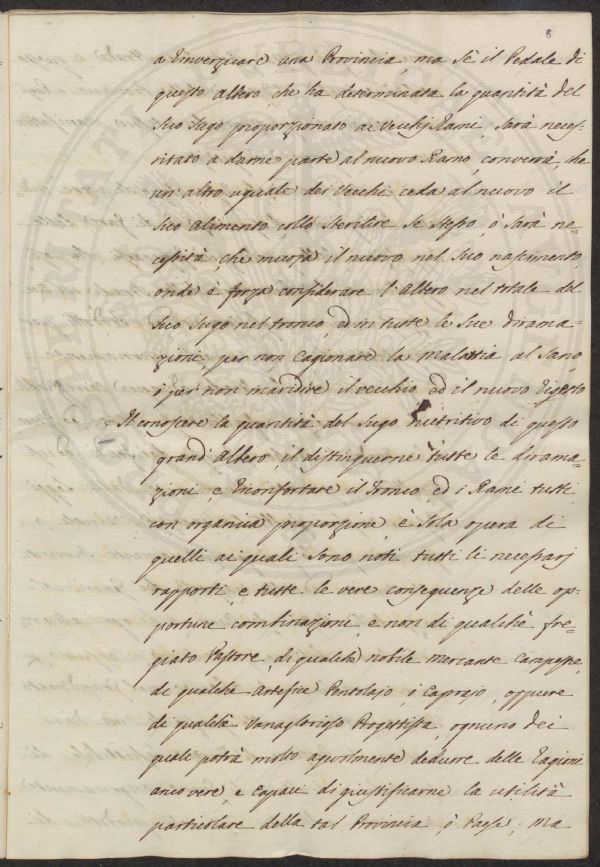 8
a rinverzicare una Provincia, ma sè il Pedale di
questo albero, che ha determinata la quantità del
suo sugo proporzionato ai Vecchj Rami, sarà neces-
sitato a darne parte al nuovo Ramo, converrà, che
un' altro uguale dei Vecchi ceda al nuovo il
suo alimento collo sterilire se stesso, ò sarà ne-
cessità, che muoja il nuovo nel suo nascimento,
onde è forza considerare l' albero nel totale del
suo sugo nel tronco, ed in tutte le sue dirama-
zione, per non cagionare la malattia al sano,
ò per non inaridire il vecchio, ed il nuovo
Il conoscere la quantità del sugo nutritivo di questo
grand' albero, il distinguerne tutte le dirama-
zioni, e riconfortare il Tronco, ed i Rami tutti
con organica proporzione, è sola opera di
quelli ai quali sono noti tutti li necessarj
rapporti, e tutte le vere conseguenze delle op-
porture combinazioni, e non di qualchè fre-
giato Pastore, di qualchè nobile mercante Campestre,
di qualche Artefice Pentolajo, ò Caprajo, oppure
di qualchè Vanaglorioso Progettista, ognuno dei
quali potrà molto agevolmente dedurre delle ragioni
anco vere, e capaci di giustificarne la utilità
particolare della tal Provincia, ò Paese, ma